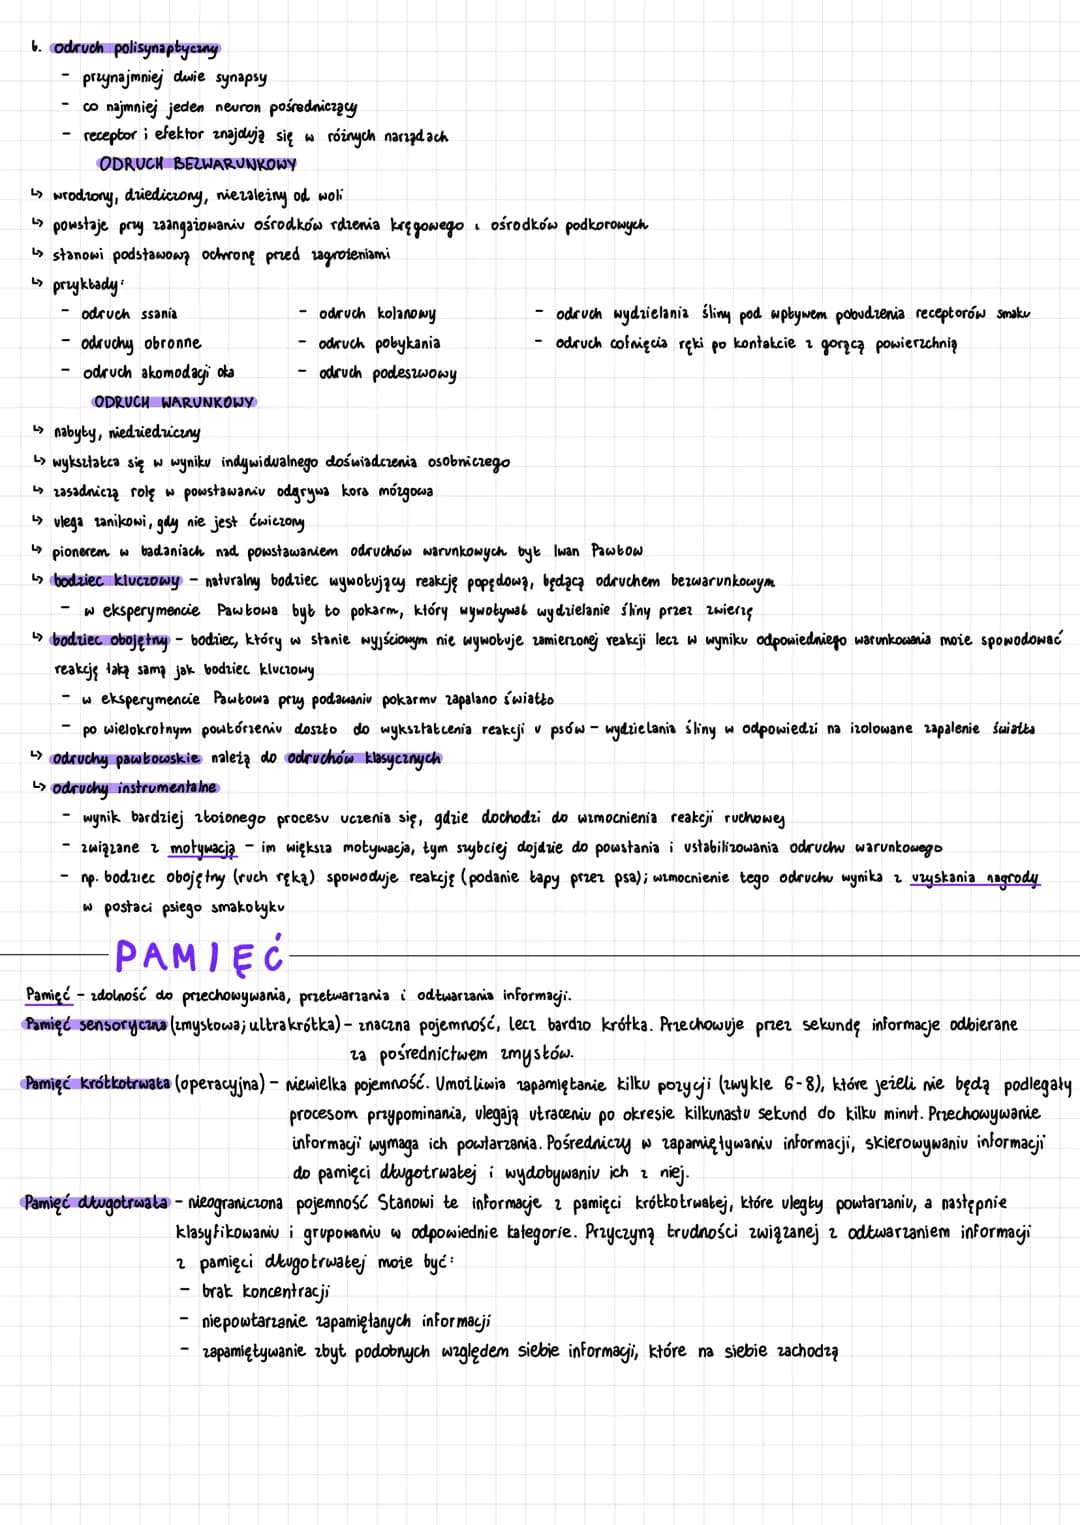 b. odruch polisynaptyczny
- przynajmniej dwie synapsy
- co najmniej jeden neuron pośredniczący
- receptor i efektor znajdują się w różnych narządach
ODRUCH BEZWARUNKOWY
↳ wrodzony, dziedziczony, niezależny od woli
↳ powstaje przy zaangażowaniu ośrodków rdzenia kręgowego i ośrodków podkorowych
↳ stanowi podstawową ochronę przed zagrożeniami
↳ przykłady:
- odruch ssania - odruch kolanowy - odruch wydzielania śliny pod wpływem pobudzenia receptorów smaku
- odruchy obronne - odruch połykania - odruch cofnięcia ręki po kontakcie z gorącą powierzchnią
- odruch akomodacji oka - odruch podeszwowy
ODRUCH WARUNKOWY
↳ nabyty, niedziedziczny
↳ wykształca się w wyniku indywidualnego doświadczenia osobniczego
↳ zasadniczą rolę w powstawaniu odgrywa kora mózgowa
↳ ulega zanikowi, gdy nie jest ćwiczony
↳ pionerem w badaniach nad powstawaniem odruchów warunkowych był Iwan Pawłow
↳ bodziec kluczowy - naturalny bodziec wywołujący reakcję popędową, będącą odruchem bezwarunkowym
- w eksperymencie Pawłowa był to pokarm, który wywoływał wydzielanie śliny przez zwierzę
↳ bodziec obojętny - bodziec, który w stanie wyjściowym nie wywołuje zamierzonej reakcji lecz w wyniku odpowiedniego warunkowania może spowodować
reakcję taką samą jak bodziec kluczowy
- w eksperymencie Pawłowa przy podawaniu pokarmu zapalano światło
- po wielokrotnym powtórzeniu doszło do wykształcenia reakcji u psów - wydzielania śliny w odpowiedzi na izolowane zapalenie światła
↳ odruchy pawłowskie należą do odruchów klasycznych
↳ odruchy instrumentalne
- wynik bardziej złożonego procesu uczenia się, gdzie dochodzi do wzmocnienia reakcji ruchowej
- związane z motywacją - im większa motywacja, tym szybciej dojdzie do powstania i ustabilizowania odruchu warunkowego
- np. bodziec obojętny (ruch ręką) spowoduje reakcję (podanie łapy przez psa); wzmocnienie tego odruchu wynika z uzyskania nagrody
w postaci psiego smakołyku
PAMIĘĆ
Pamięć - zdolność do przechowywania, przetwarzania i odtwarzania informacji.
Pamięć sensoryczna (zmysłowa; ultrakrótka) - znaczna pojemność, lecz bardzo krótka. Przechowuje przez sekundę informacje odbierane
za pośrednictwem zmysłów.
Pamięć krótkotrwała (operacyjna) - niewielka pojemność. Umożliwia zapamiętanie kilku pozycji (zwykle 6-8), które jeżeli nie będą podlegały
procesom przypominania, ulegają utraceniu po okresie kilkunastu sekund do kilku minut. Przechowywanie
informacji wymaga ich powtarzania. Pośredniczy w zapamiętywaniu informacji, skierowywaniu informacji
do pamięci długotrwałej i wydobywaniu ich z niej.
Pamięć długotrwała - nieograniczona pojemność Stanowi te informacje z pamięci krótkotrwałej, które uległy powtarzaniu, a następnie
klasyfikowaniu i grupowaniu w odpowiednie kategorie. Przyczyną trudności związanej z odtwarzaniem informacji
z pamięci długotrwałej może być:
- brak koncentracji
- niepowtarzanie zapamiętanych informacji
- zapamiętywanie zbyt podobnych względem siebie informacji, które na siebie zachodzą